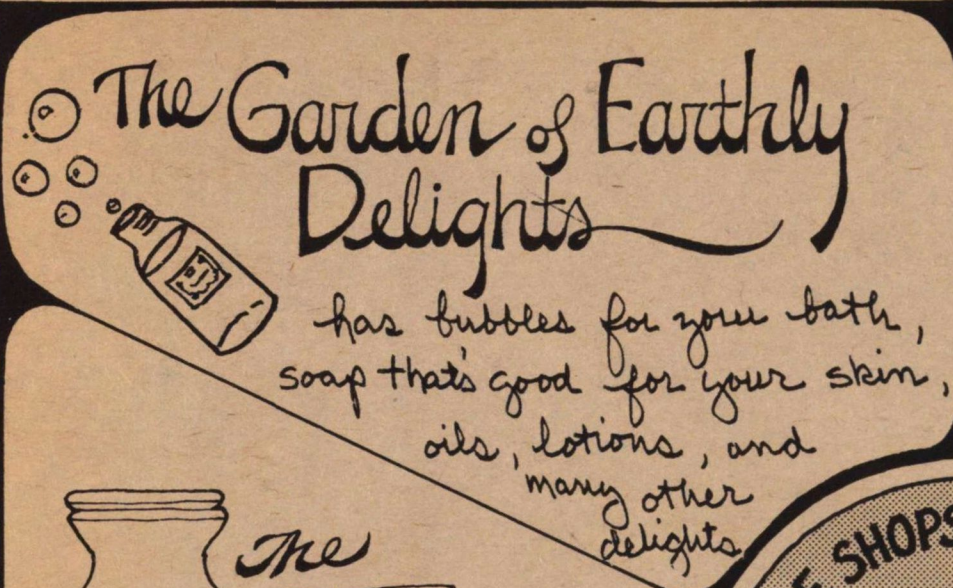 The Garden of Earthly
Delights
has bubbles for your bath,
soap that's good for your skin,
oils, lotions, and
many other
delights
The
SHOPS